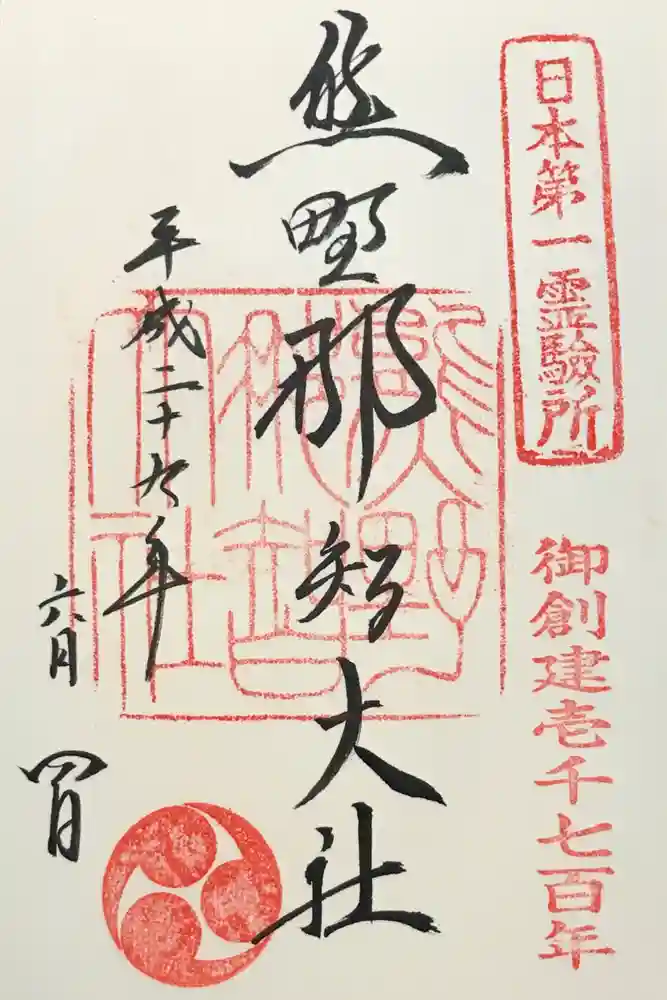 日本第一霊験所
御創建壱千七百年
熊野那智大社
熊野那智大社
平成二十九年
六月
四日